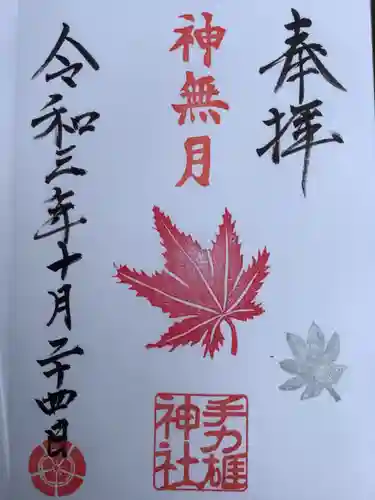 奉拝
神無月
手力雄
神社
令和三年十月二十四日